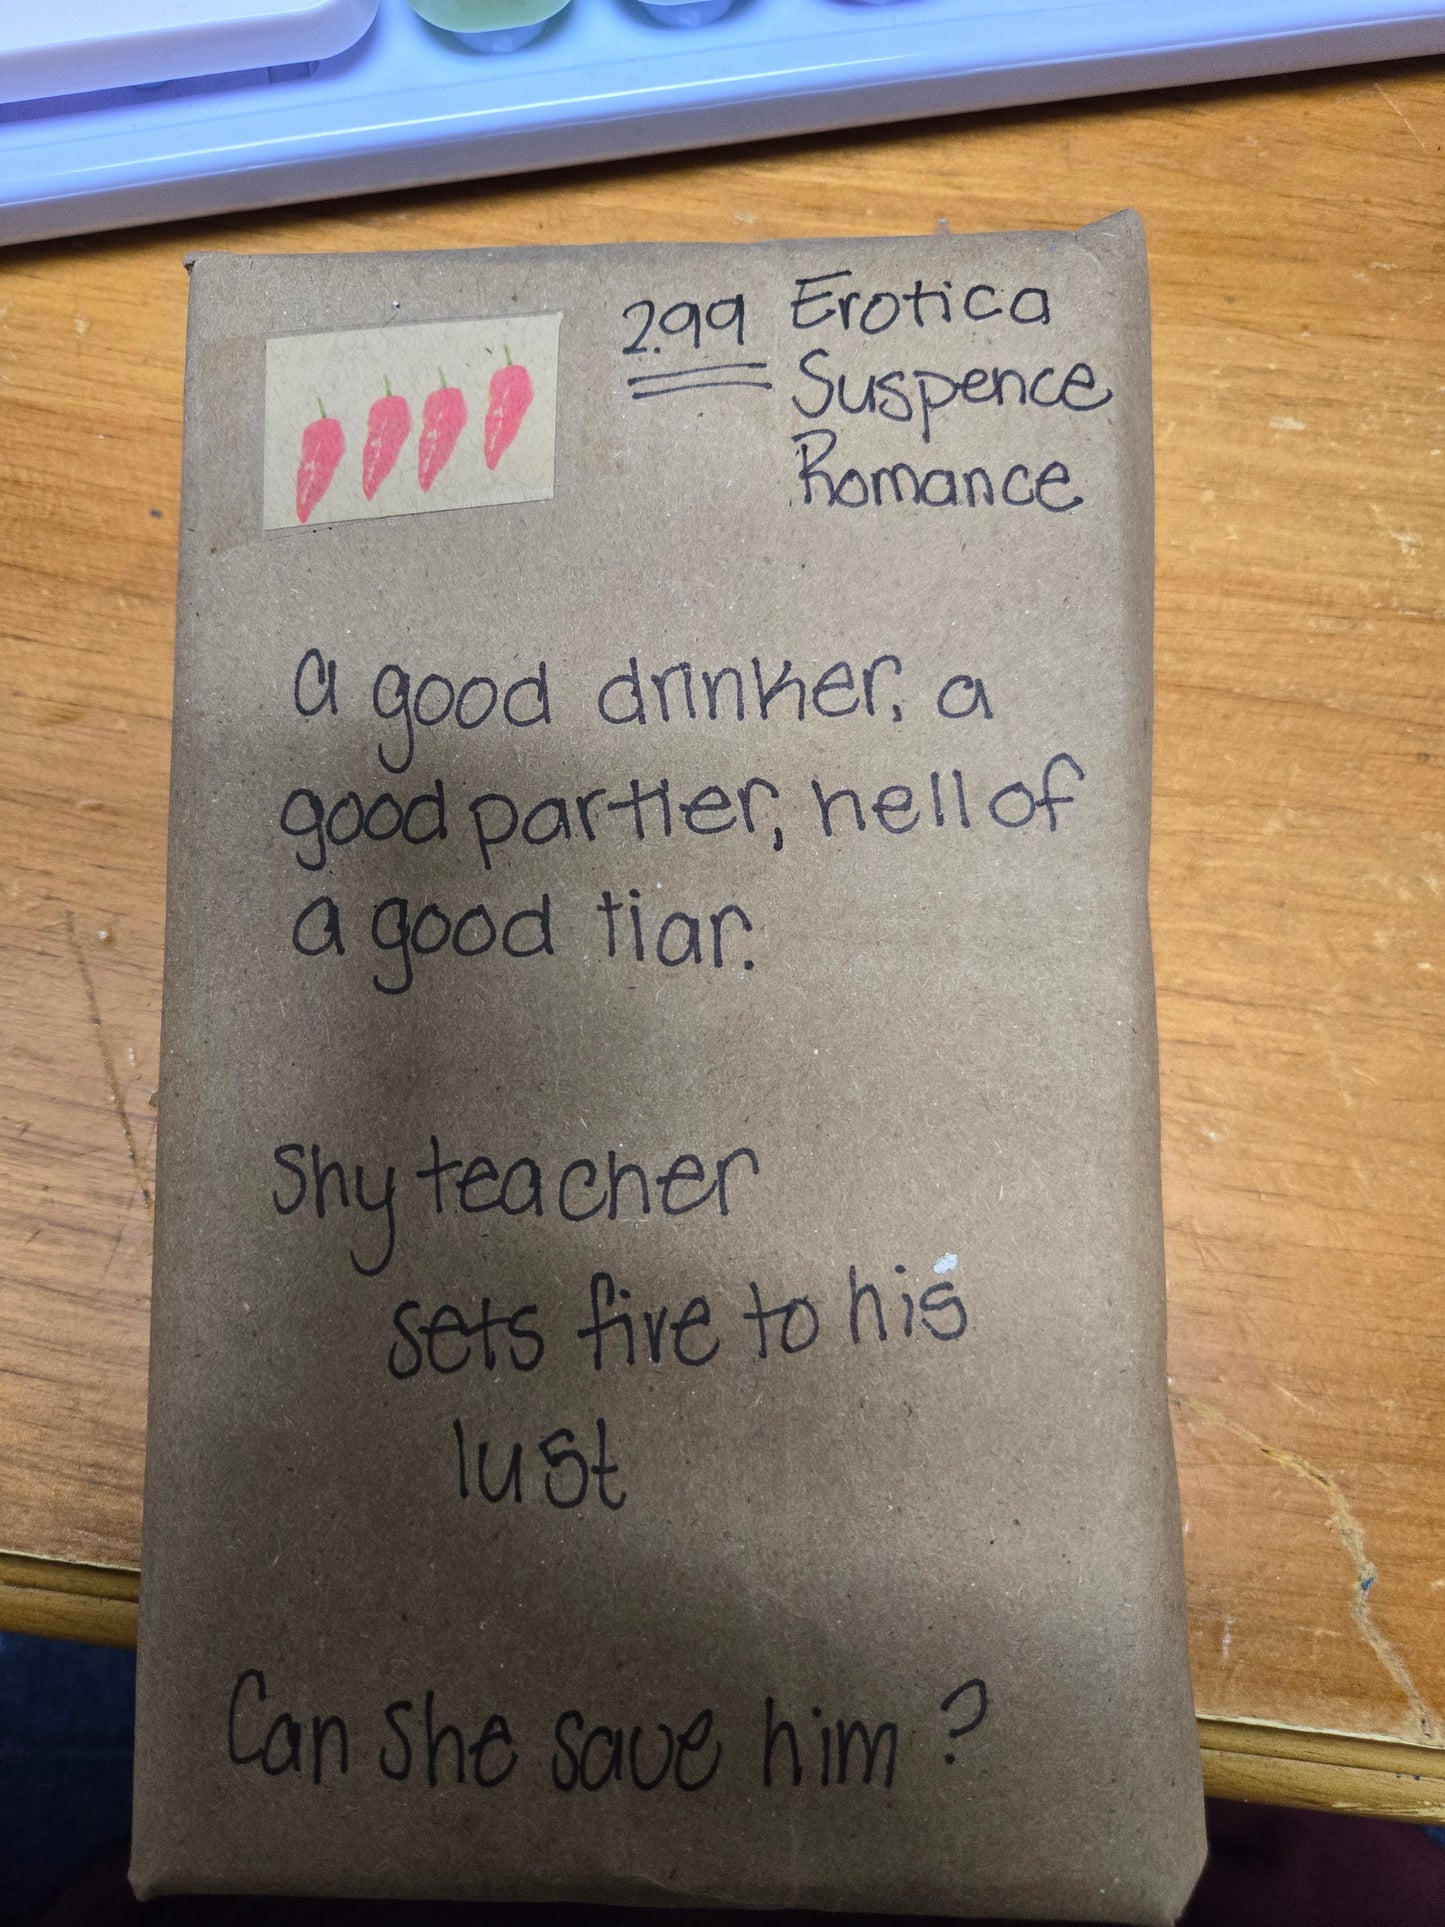 2.99
Erotica
Suspence
Romance
a good drinker, a
good partier, hell of
a good tiar.
Shy teacher
sets fire to his
lust
Can she save him?